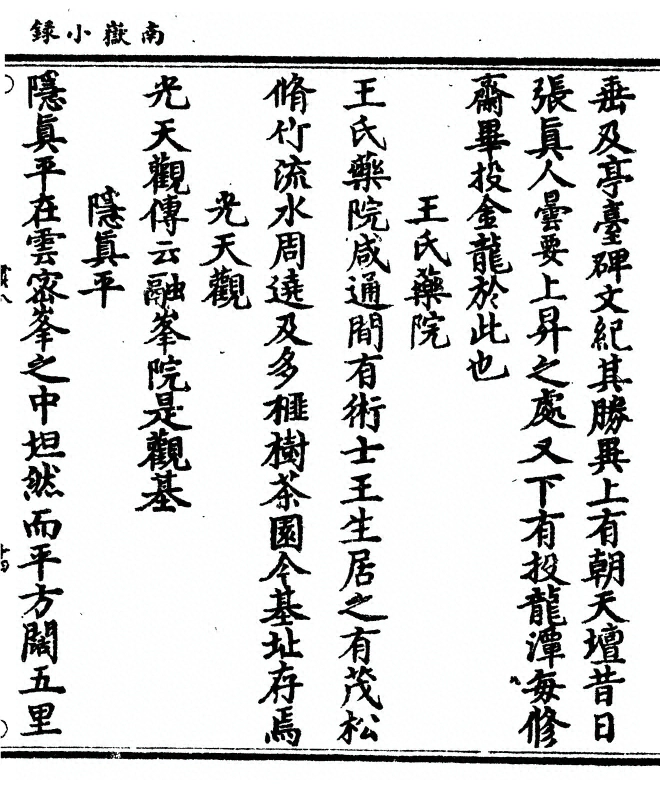 南嶽小錄
垂及亭臺碑文紀其勝異上有朝天壇昔日
張眞人曇要上昇之處又下有投龍潭每修
齋畢投金龍於此也
王氏藥院
王氏藥院咸通間有術士王生居之有茂松
脩竹流水周遶及多榧樹茶園今基址存焉
光天觀
光天觀傳云融峯院是觀基
隱眞平
隱眞平在雲密峯之中坦然而平方闊五里